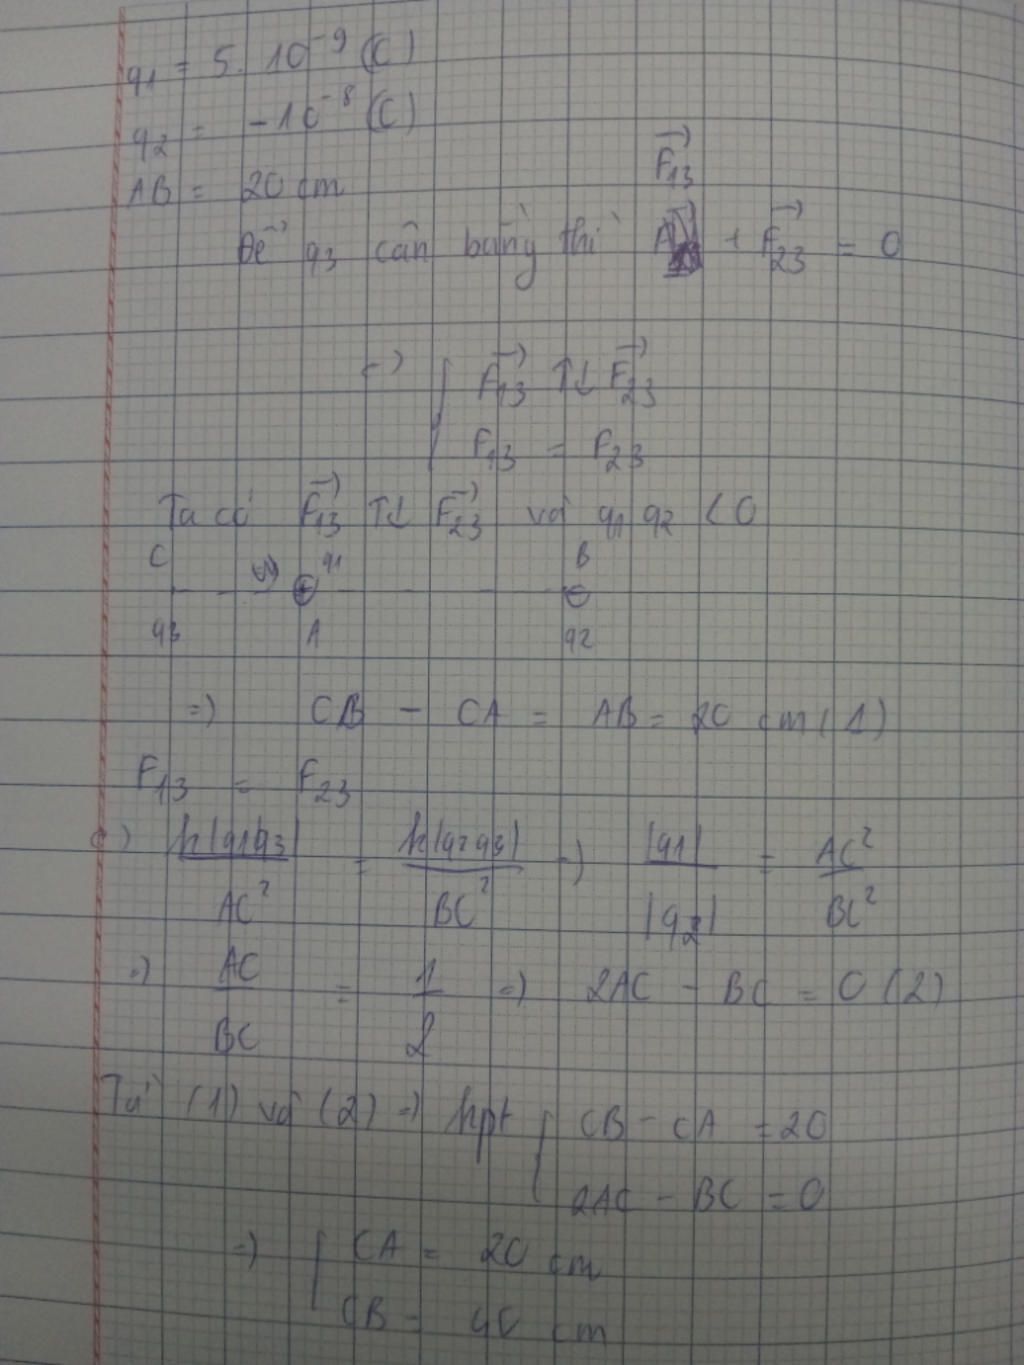 q1 = 5. 10⁻⁹ (C)
q2 = -10⁻⁸ (C)
AB = 20 cm
Để q3 cân bằng thì F₁₃→ + F₂₃→ = 0
=> { F₁₃→ ↑↓ F₂₃→
F₁₃ = F₂₃
Ta có F₁₃→ ↑↓ F₂₃→ và q1 q2 < 0
C q1 B
q3 A q2
=> CB - CA = AB = 20 cm (1)
F₁₃ = F₂₃
k|q1q3| / AC² = k|q2q3| / BC² => |q1| / |q2| = AC² / BC²
=> AC / BC = 1 / 2 => 2AC - BC = 0 (2)
Từ (1) và (2) => hpt { CB - CA = 20
2AC - BC = 0
=> { CA = 20 cm
CB = 40 cm